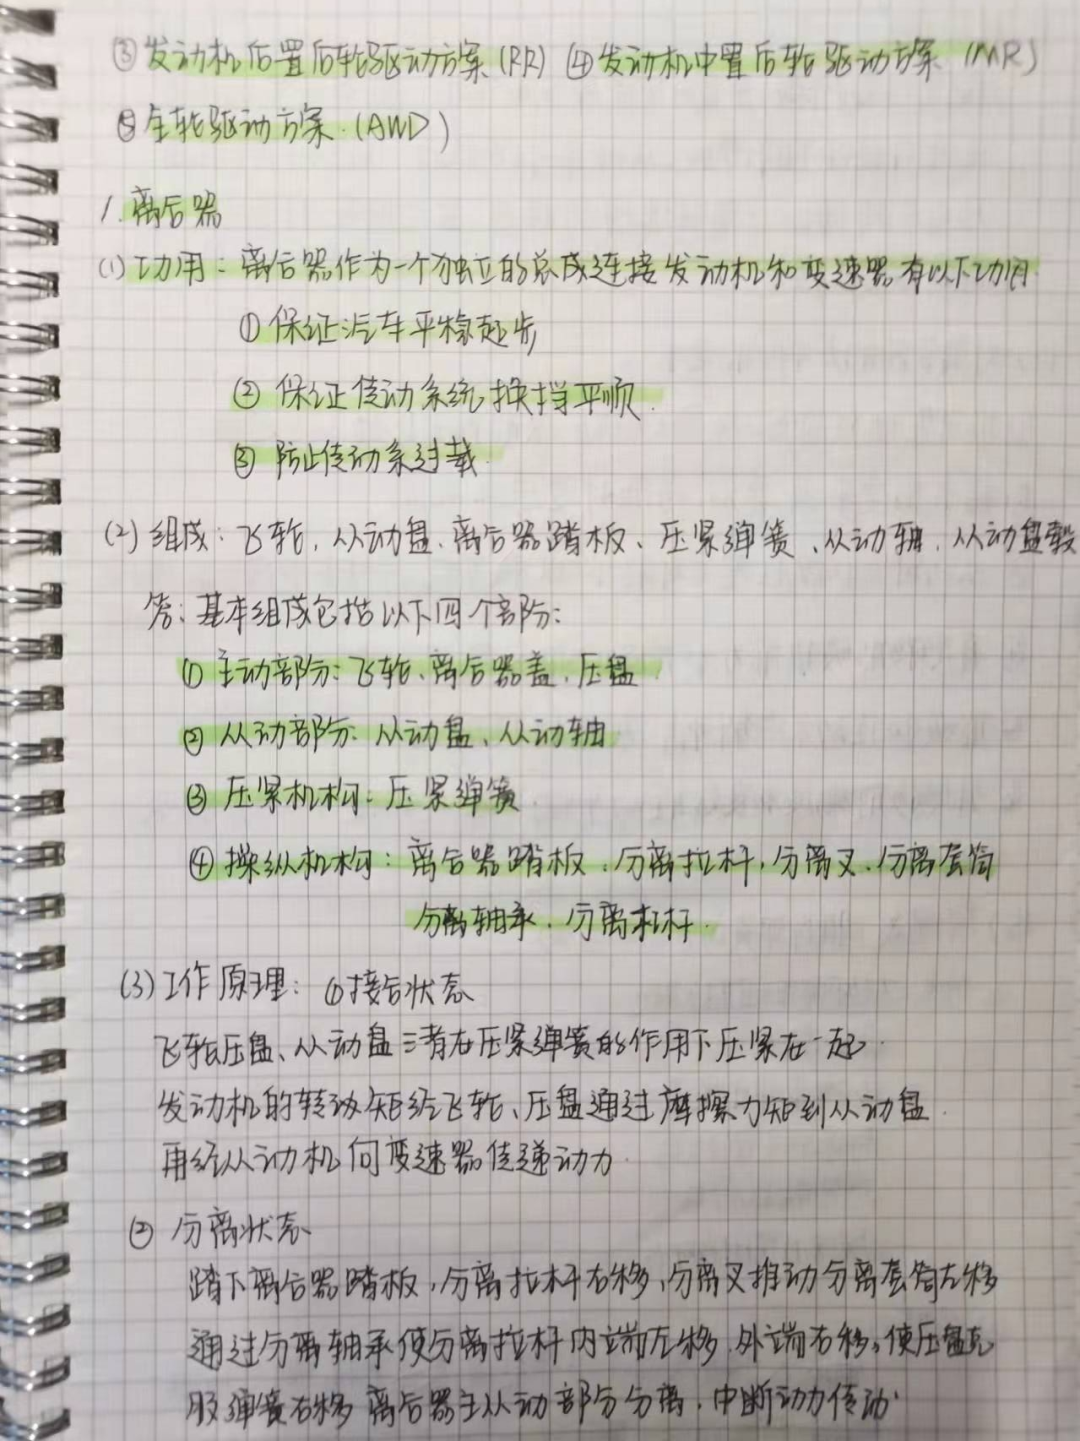 ③发动机后置后轮驱动方案(RR) ④发动机中置后轮驱动方案 (MR)
⑤全轮驱动方案.(AWD)
1.离合器
(1)功用:离合器作为一个独立的总成连接发动机和变速器有以下功用
①保证汽车平稳起步
②保证传动系统换挡平顺.
③防止传动系过载.
(2)组成:飞轮、从动盘、离合器踏板、压紧弹簧、从动轴、从动盘毂
答:基本组成包括以下四个部分:
①主动部分:飞轮、离合器盖、压盘
②从动部分:从动盘、从动轴
③压紧机构:压紧弹簧
④操纵机构:离合器踏板、分离拉杆,分离叉、分离套筒
分离轴承、分离杠杆.
(3)工作原理:①接合状态
飞轮压盘、从动盘三者在压紧弹簧的作用下压紧在一起.
发动机的转动矩经飞轮、压盘通过摩擦力矩到从动盘.
再经从动机向变速器传递动力.
②分离状态
踏下离合器踏板,分离拉杆右移,分离叉推动分离套筒左移
通过分离轴承使分离拉杆内端左移.外端右移,使压盘克
服弹簧右移 离合器主从动部分分离,中断动力传动.